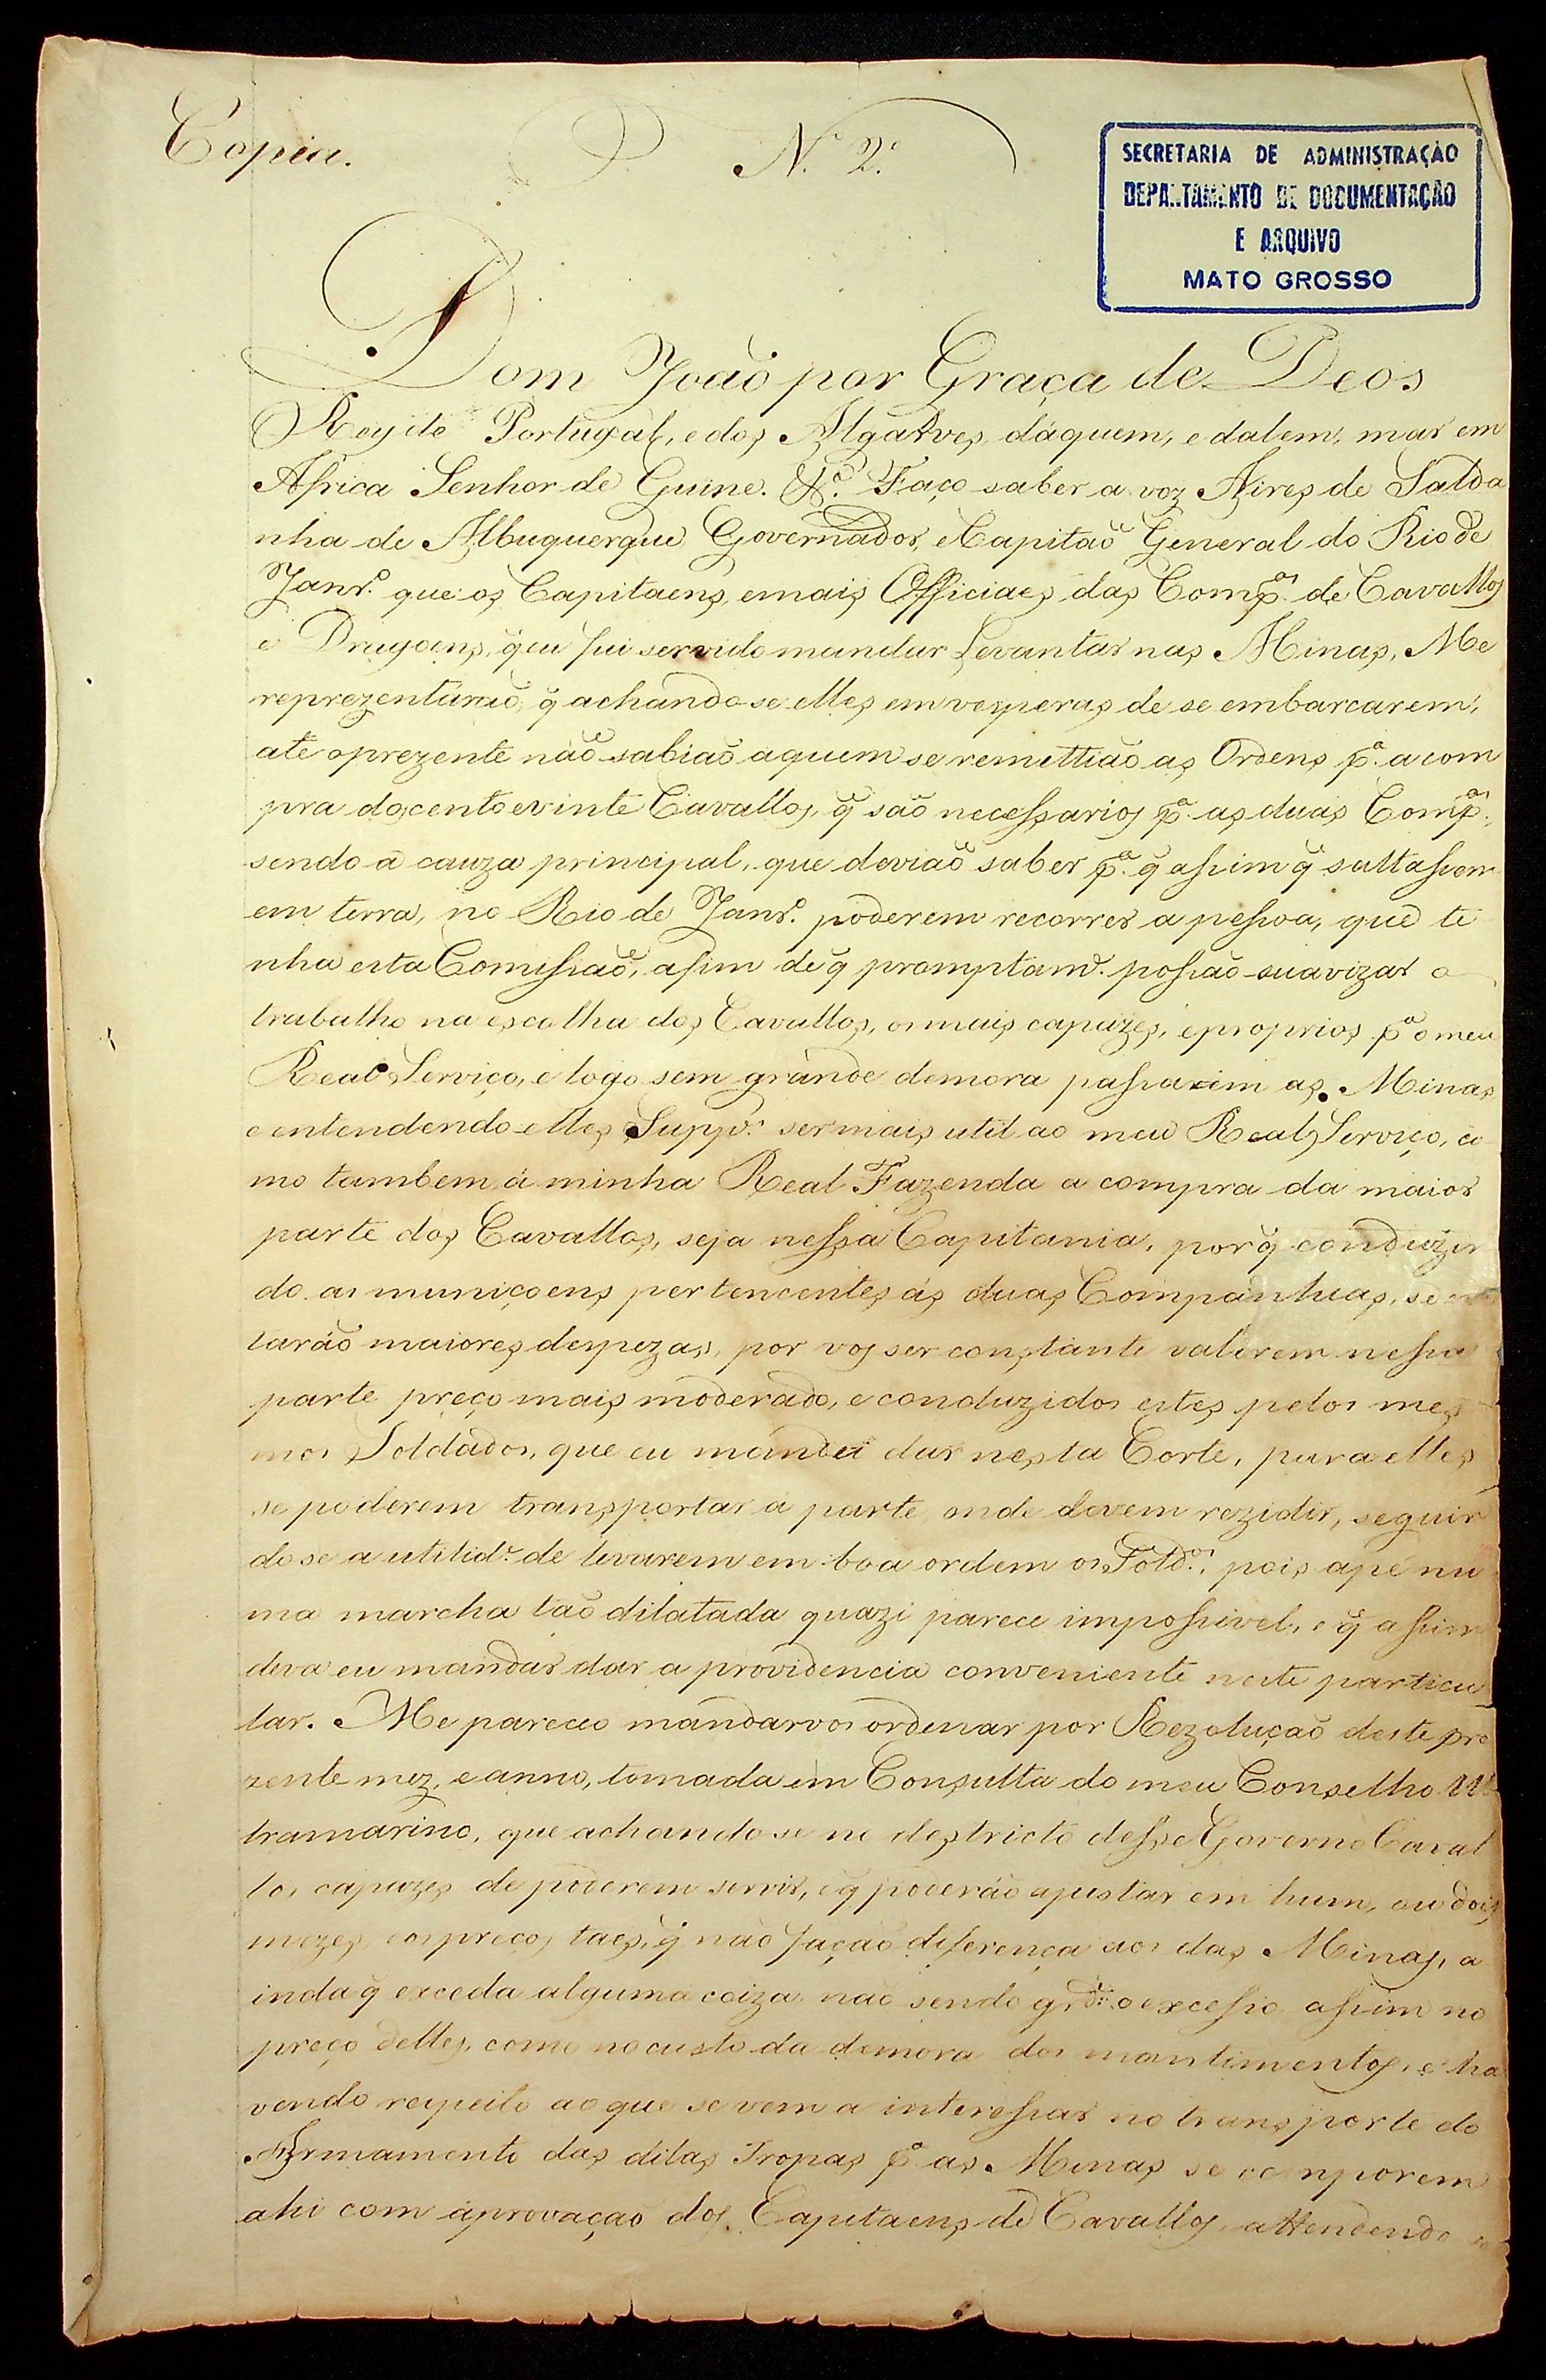 Copia.
N.º 2.º
SECRETARIA DE ADMINISTRAÇÃO
DEPARTAMENTO DE DOCUMENTAÇÃO
E ARQUIVO
MATO GROSSO
Dom João por Graça de Deos
Rey de Portugal, e dos Algarves, dáquem, e dalem, mar em
Africa Senhor de Guine. &.ª Faço saber a voz Aires de Salda
nha de Albuquerque Governador, e Capitaõ General do Rio de
Janr.º que os Capitaens, e mais Officiaes das Comp.as de Cavallos
e Dragoens, q̃ eu fui servido mandar Levantar nas Minas, Me
reprezentáraõ, q̃ achando-se elles em vesperas de se embarcarem,
até o prezente naõ sabiaõ a quem se remettiaõ as Ordens p.ª a com
pra dos cento e vinte Cavallos, q̃ saõ necessarios p.ª as duas Comp.as,
sendo a cauza principal, que deviaõ saber p.ª q̃ assim q̃ saltassem
em terra, no Rio de Janr.º poderem recorrer a pessoa, que te
nha esta Comissaõ, afim de q̃ promptam.e possaõ suavizar o
trabalho na escolha dos Cavallos, os mais capazes, e proprios p.ª o meu
Real Serviço, e logo sem grande demora passarem as Minas
e entendendo elles Supp.es ser mais util ao meu Real Serviço, co
mo tambem á minha Real Fazenda a compra da maior
parte dos Cavallos, seja nessa Capitania, por q̃ conduzin
do as muniçoens pertencentes ás duas Companhias, se
taráõ maiores despezas, por vos ser constante valerem nessa
parte preço mais moderado, e conduzidos estes pelos mes
mos Soldados, que eu mandei dar nesta Corte, para elles
se poderem transportar á parte onde devem rezidir, seguin
do se a utilid.e de levarem em boa ordem os Sold.os, pois a pé nu
ma marcha taõ dilatada quazi parece impossivel, e q̃ assim
deva eu mandar dar a providencia conveniente neste particu
lar. Me pareceo mandarvos ordenar por Rezoluçaõ deste pre
zente mez, e anno, tomada em Consulta do meu Conselho Ul
tramarino, que achando se no destricto desse Governo Caval
los capazes de poderem servir, e q̃ poderáõ ajustar em hum, ou dois
mezes, e os preços taes, q̃ naõ façaõ diferença aos das Minas, a
inda q̃ exceda alguma coiza naõ sendo gr.de o excesso assim no
preço delles, como no custo da demora dos mantimentos, e ha
vendo respeito ao que se vem a interessar no transporte do
Armamento das ditas Tropas p.ª as Minas se comporem
ahi com aprovaçaõ dos Capitaens de Cavallos, attendendo